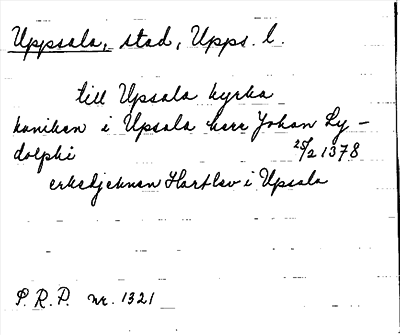 Uppsala, stad, Upps. l.
till Upsala kyrka
kaniken i Upsala herr Johan Ly-
dolphi 25/2 1378
erkedjeknen Hartlev i Upsala
P. R. P. nr. 1321